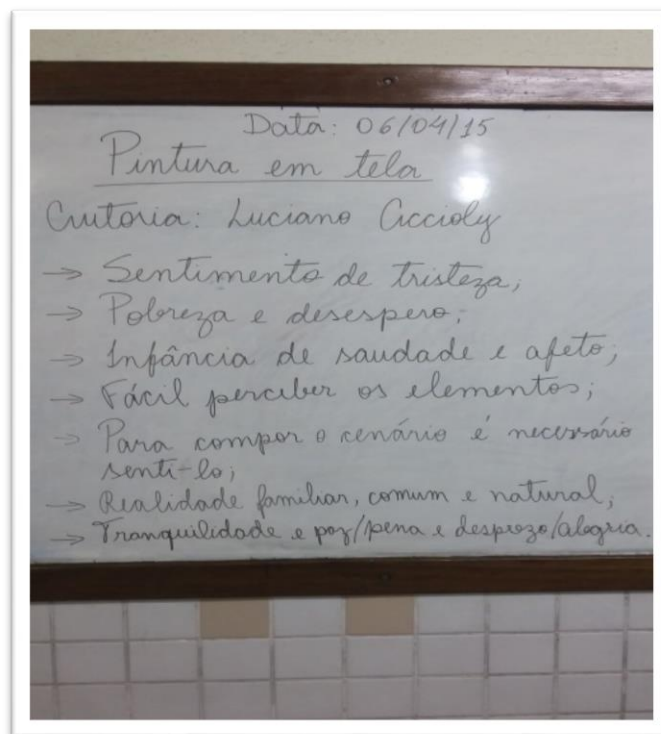 Data: 06/04/15
Pintura em tela
Autoria: Luciano Accioly
→ Sentimento de tristeza;
→ Pobreza e desespero;
→ Infância de saudade e afeto;
→ Fácil perceber os elementos;
→ Para compor o cenário é necessário
senti-lo;
→ Realidade familiar, comum e natural;
→ Tranquilidade e paz/pena e desprezo/alegria.